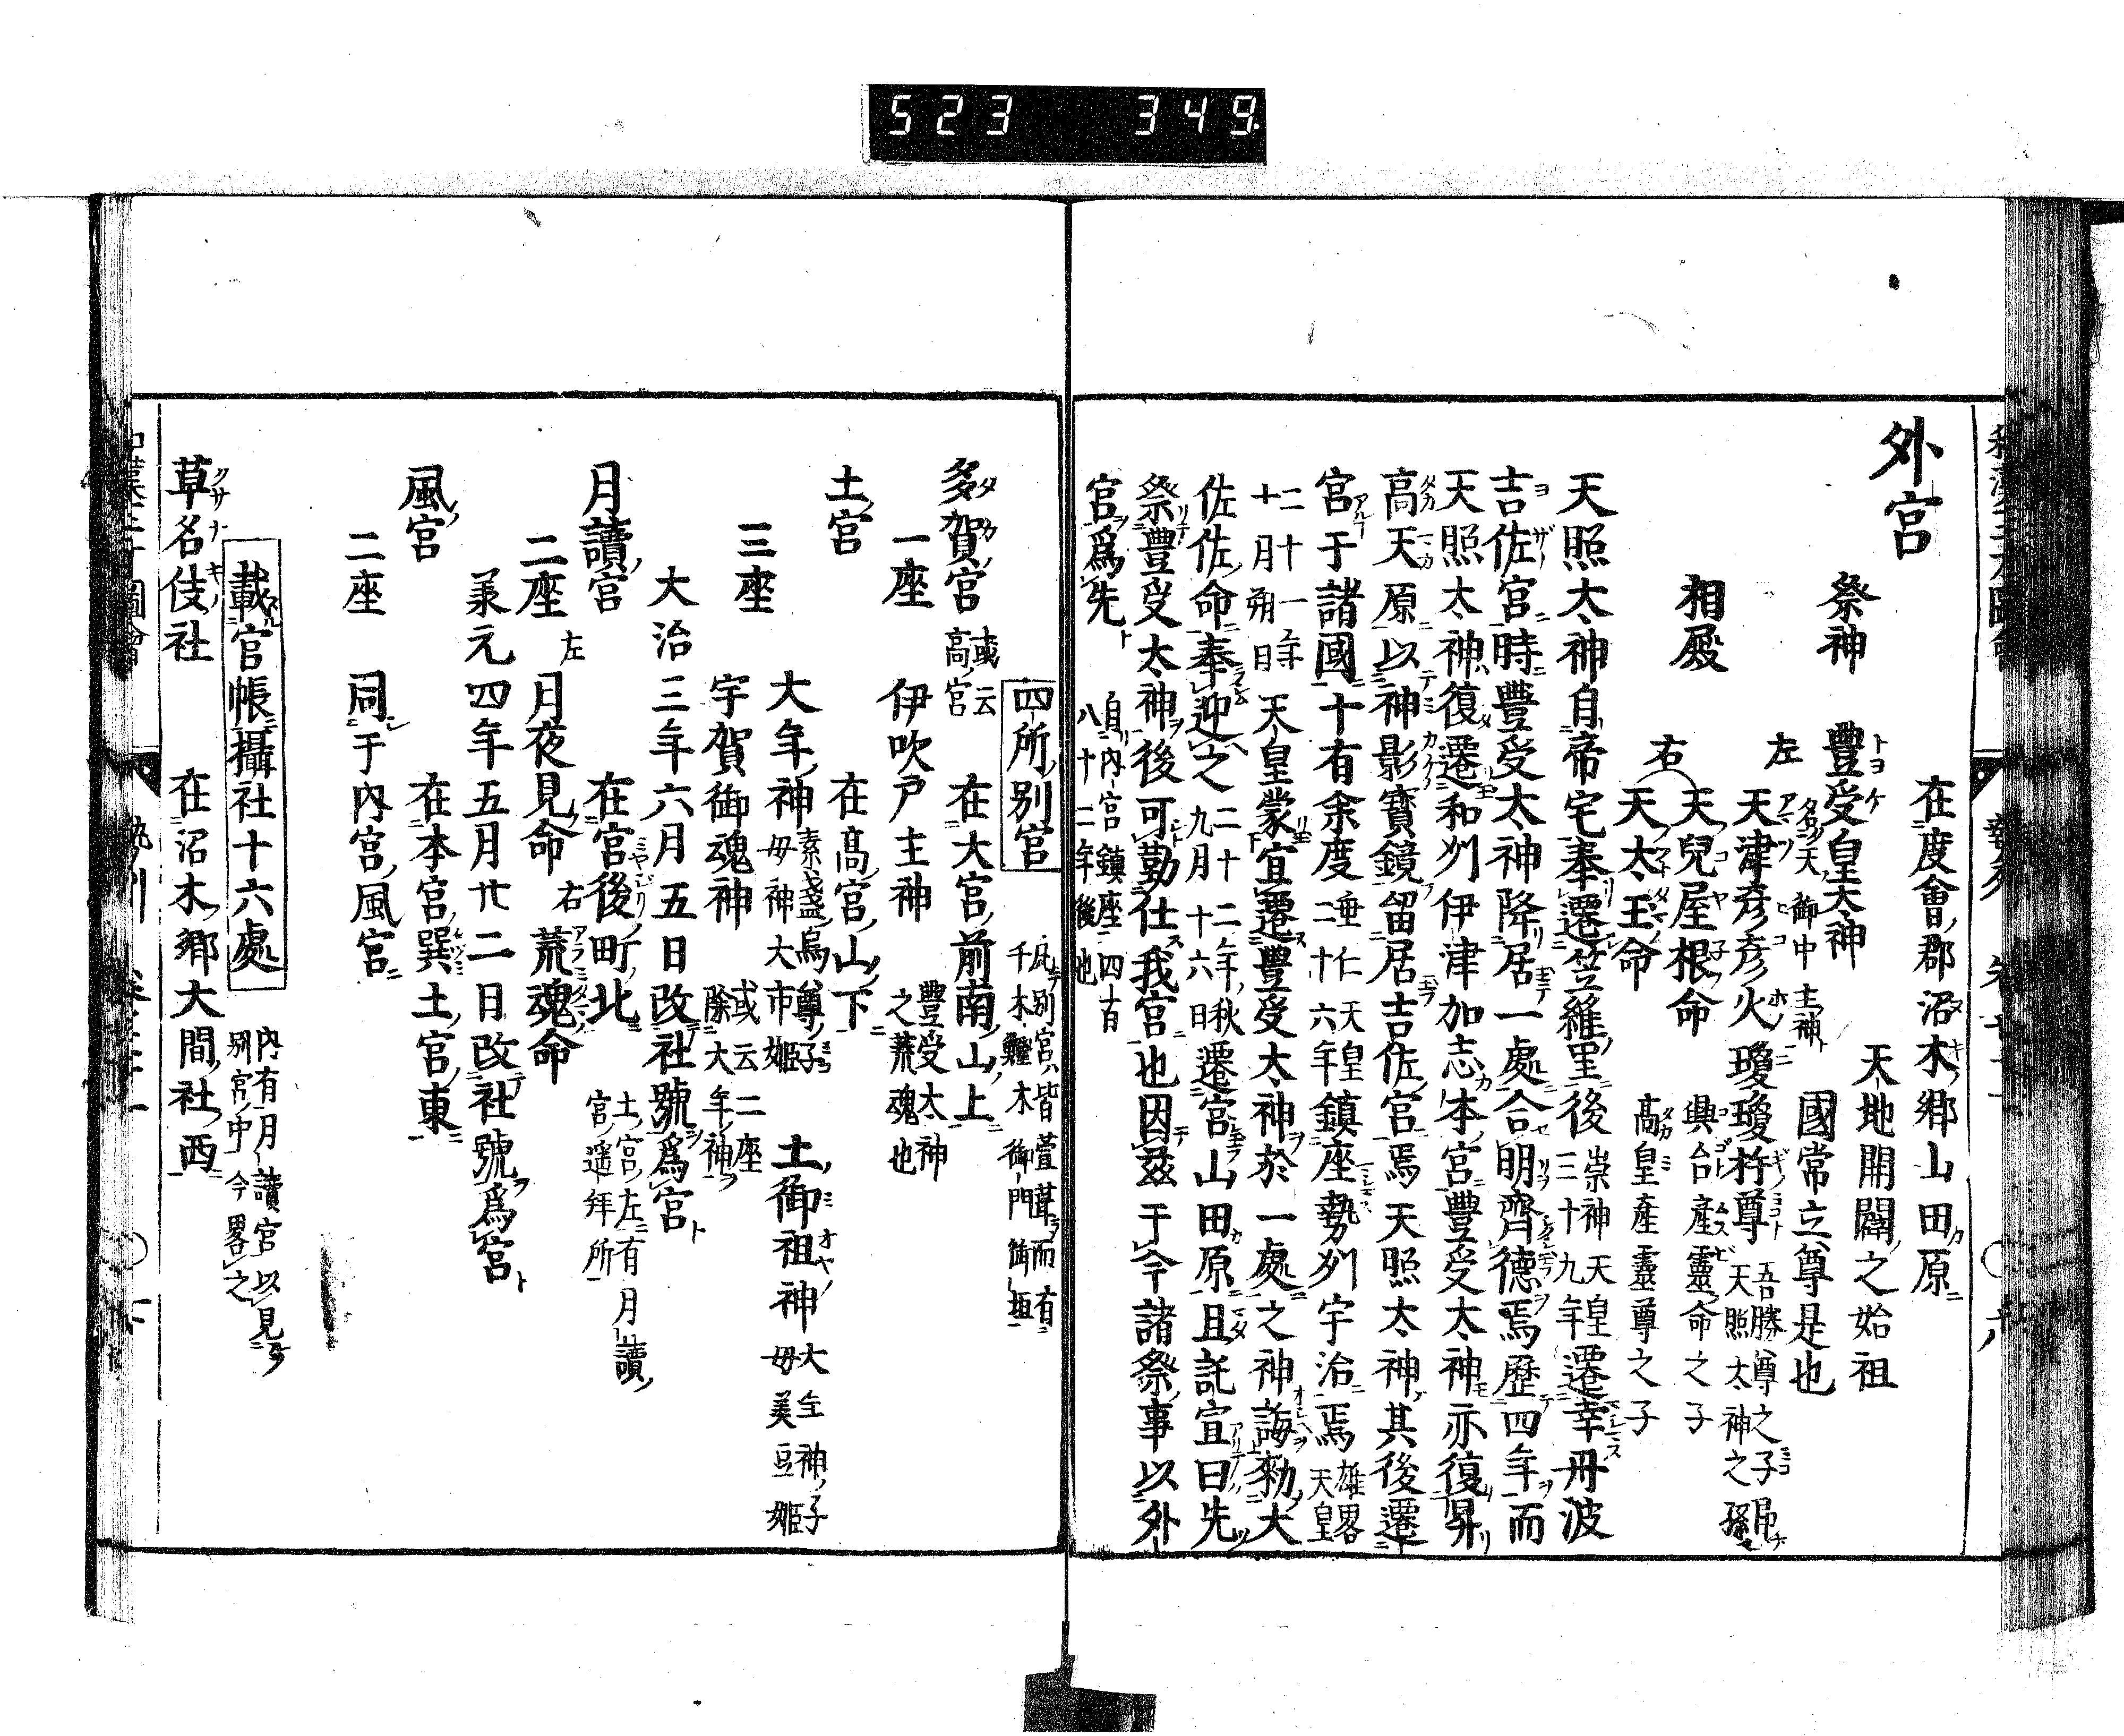 523 349
外宮
在度會郡沼木郷山田原
祭神 豐受皇太神 天地開闢之始祖
名天御中主神 國常立尊是也
相殿
左 天津彦彦火瓊瓊杵尊 吾勝尊之子 天照太神之孫
右 天兒屋根命 興台產靈命之子
天太玉命 高皇產靈尊之子
天照太神自帝宅奉遷笠縫里後 崇神天皇三十九年遷幸丹波
吉佐宮時豐受太神降居一處合明齊德焉歷四年而
天照太神復遷和州伊津加志本宮豐受太神亦復昇
高天原以神影寶鏡留居吉佐宮焉天照太神其後遷
宮于諸國十有余度 垂仁天皇二十六年鎮座勢州宇治焉 雄畧天皇
二十一年十月朔日 天皇蒙宜遷豐受太神於一處之神誨勑大
佐佐命奉迎之 二十二年秋九月十六日 遷宮山田原且託宣曰先
祭豐受太神後可勤仕我宮也因茲于今諸祭事以外
宮爲先 自內宮鎮座四百八十二年後也
四所別宮 凡別宮皆萱葺而有千木鰹木御門御垣
多賀宮 或云高宮 在大宮前南山上
一座 伊吹戸主神 豐受太神之荒魂也
土宮 在高宮山下
三座 大年神 素盞烏尊子 母神大市姬 土御祖神 大年神子 母美豆姬
宇賀御魂神 或云二座除大年神
大治三年六月五日改社號爲宮
月讀宮 在宮後町北 土宮左有月讀宮遥拜所
二座 左 月夜見命 右 荒魂命
承元四年五月廿二日改社號爲宮
風宮 在本宮巽土宮東
二座 同于內宮風宮
載官帳攝社十六處 內有月讀宮以見別宮中今畧之
草名伎社 在沼木郷大間社西